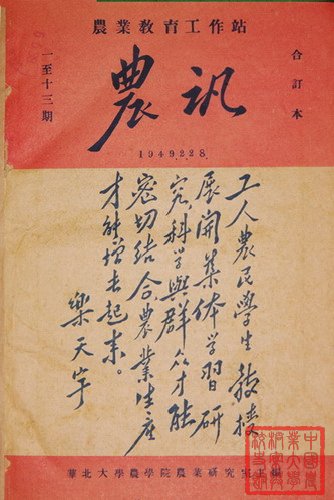 農業教育工作站
合訂本
農訊
一至十三期
1949228
工人農民學生教授
展開集体学習研
究,科学與群众才能
密切結合農業生産
才能增長起來。
樂天宇
華北大學農學院農業研究室主編